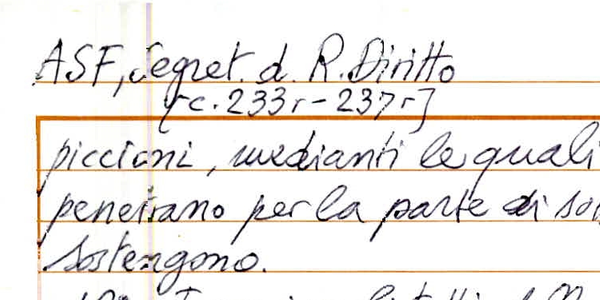 ASF, Segret. d. R. Diritto
[c. 233r-237r]
piccioni, medianti le quali
penetrano per la parte di
sostengono.